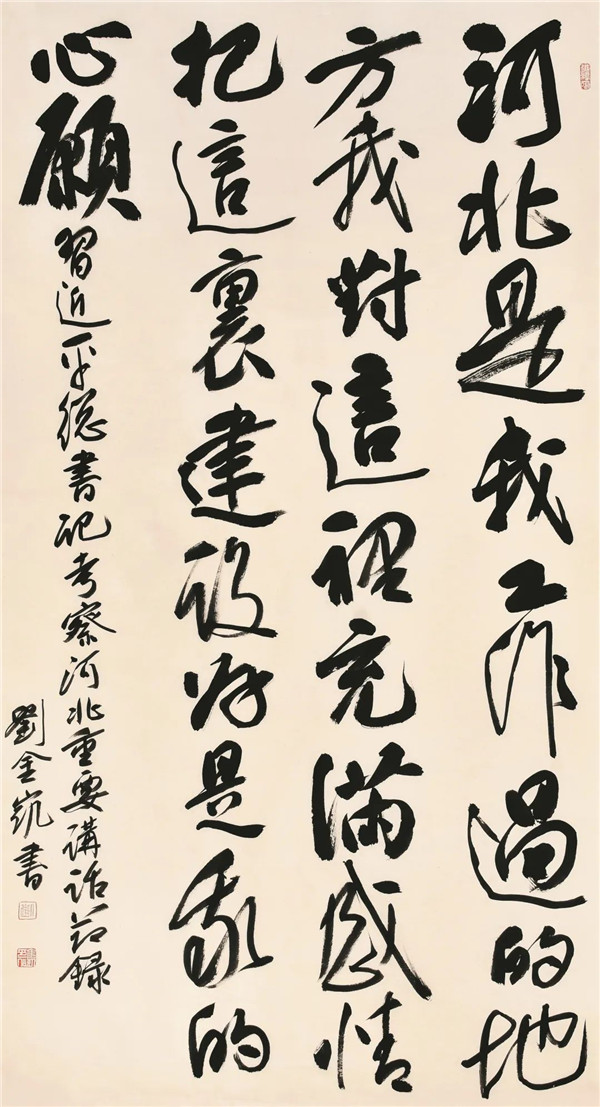 河北是我工作過的地
方我對這裡充滿感情
把這裏建設好是我的
心願
習近平總書記考察河北重要講話節錄
劉金凱書